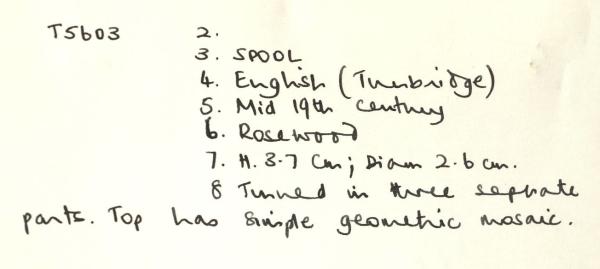 T5603 2.
3. SPOOL
4. English (Tunbridge)
5. Mid 19th century
6. Rosewood
7. H. 3.7 cm; Diam 2.6 cm.
8 Turned in three seprate
parts. Top has simple geometric mosaic.